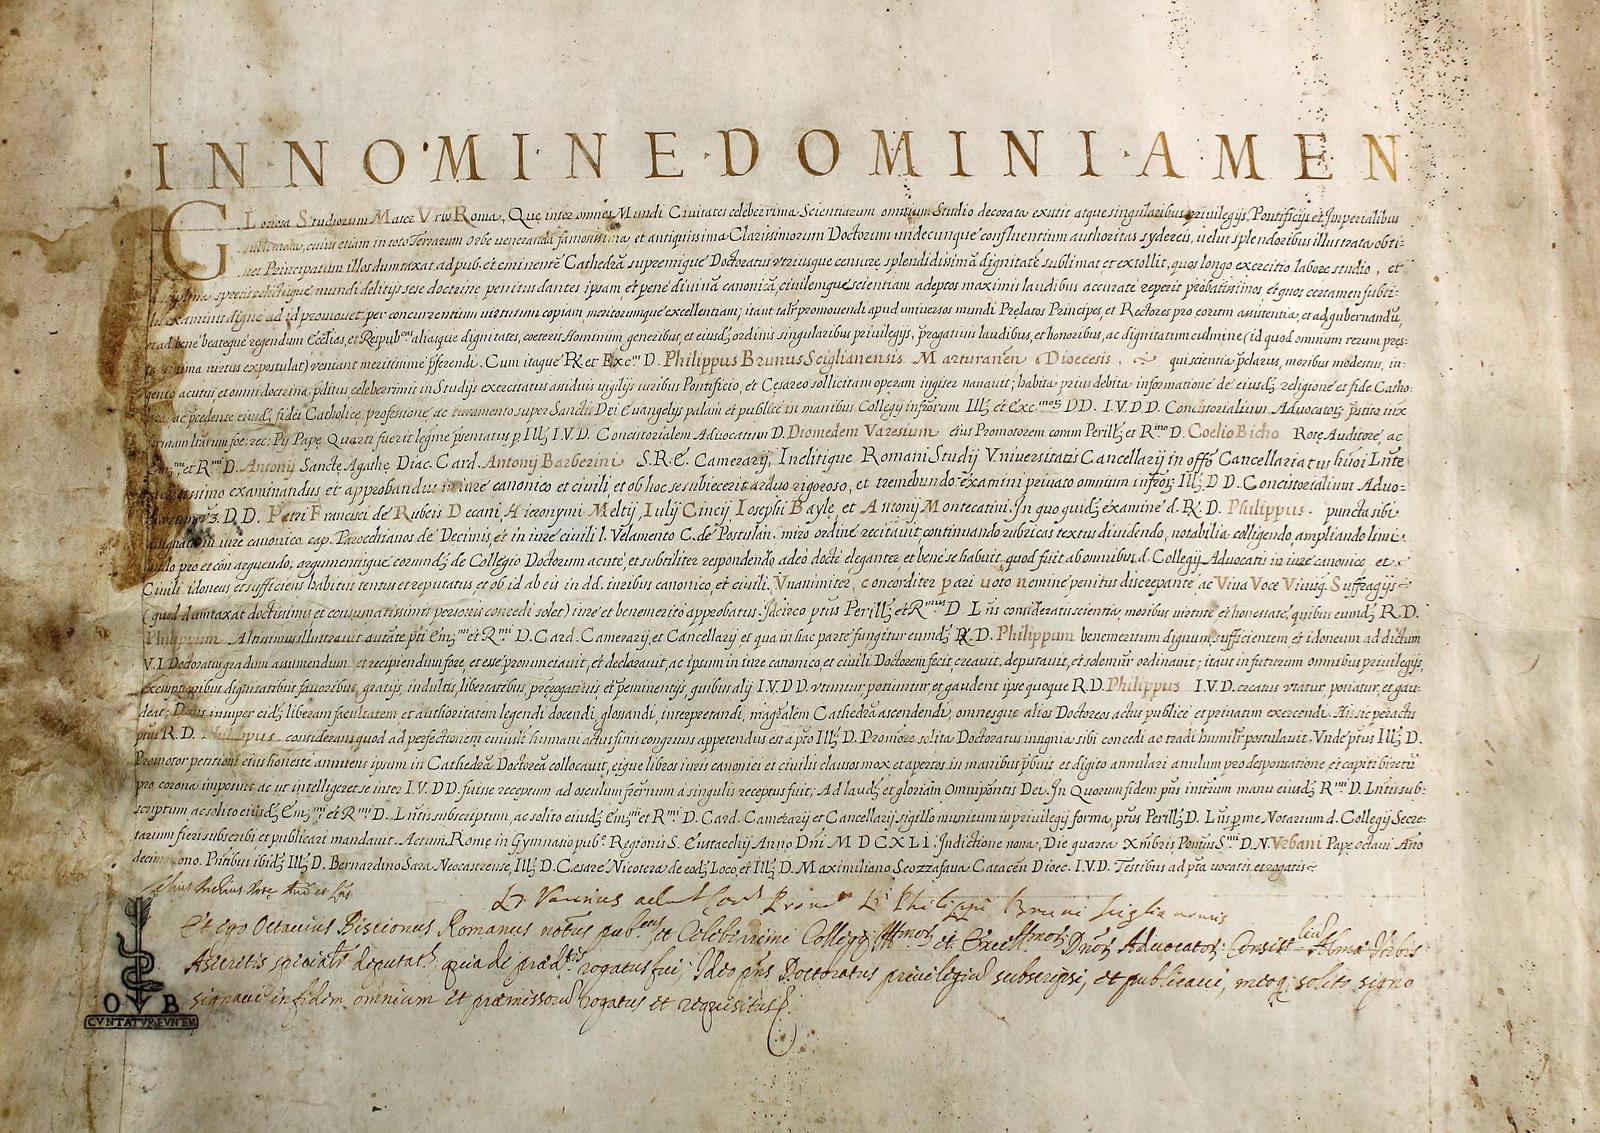 IN NOMINE DOMINI AMEN
Gloriosa Studiorum Mater Vrbs Roma, Quę inter omnes Mundi Civitates celeberrima Scientiarum omnium Studio decorata existit atque singularibus privilegijs, Pontificijs et Imperialibus
sublimata, cuius etiam in toto Terrarum Orbe veneranda famosissima et antiquissima Clarissimorum Doctorum undecunque confluentium authoritas sydereis, uelut splendoribus illustrata obti-
net Principatum illos dumtaxat ad pub. et eminentē Cathedrā supremique Doctoratus vtriusque censurę splendidissimā dignitatē sublimat et extollit, quos longo exercitio labore studio, et
mundi delitijs sese doctrinę penitus dantes ipsam, et penè divinā canonicā, civilemque scientiam adeptos maximis laudibus accuratè reperit probatissimos et quos certamen subti-
examinis dignè ad id promovet per concurrentium virtutum copiam meritorumque excellentiam; itaut talr̃ promovendi apud universos mundi Pręlatos Principes, et Rectores pro eorum assistentia, et ad gubernandū,
et ad benè beateque regendum Ecclias, et Respub.cas aliasque dignitates, cœteris Hominum generibus, et eiusd. ordinis singularibus privilegijs, p̃rogatiuis laudibus, et honoribus, ac dignitatum culmine (id quod omnium rerum pręs-
virtus expostulat) veniant meritissimè p̃ferendi. Cum itaque R. et Exc.ms D. Philippus Brunus Sciglianensis Marturanēn Diœcesis, qui scientia p̃clarus, moribus modestus, in-
genio acutus et omni doctrina p̃ditus celeberrimis in Studijs exercitatus assiduis vigilijs iuribus Pontificio, et Cesareo sollicitam operam iugiter nauauit; habita prius debita informationē de eiusd. religione et fide Catho-
lica, ac p̃cedente eiusd. fidei Catholicę professione ac iuramento super Sancta Dei Evangelys palam et publicè in manibus Collegij infrorum Ill. et Exc.morum DD. I.V.D D. Concistorialium Aduocator. p̃stito iux
formam l̃rarum foe: rec: Pij Papę Quarti fuerit legimẽ p̃sentatus p Ill. I.V.D. Concistorialem Aduocatum D. Diomedem Varesium eius Promotorem coram Perill. et R.mo D. Coelio Bicho Rotę Auditore, ac
Em.mi et R.mi D. Antonij Sanctę Agathę Diac. Card. Antonij Barberini S.R.E. Camerarij, Inclitique Romani Studij Vniuersitatis Cancellarij in offō Cancellariatus huiōi Lnte
examinandus et approbandus in iure canonico et civili, et ob hoc se subiecerit arduo rigoroso, et tremebundo examini priuato omnium infror. Ill. D D. Concistorialium Aduo-
catorum vz. D. D. Petri Francisci de Rubeis Decani, Hieronymi Meltij, Iulij Cincij Iosephi Baylę, et Antonij Montecatini. In quo quid. examinē d. R. D. Philippus puncta sibi
assignata in iure canonico cap. Parochianos de Decimis, et in iure ciuili l. Velamento C. de Postulan. miro ordinē recitauit continuando rubricas textus diuidendo, notabilia colligendo ampliando limi-
tando pro et con arguendo, argumentisque eorumd. de Collegio Doctorum acutè, et subtiliter respondendo adeò doctè eleganter, et benè se habuit, quod fuit ab omnibus d. Collegij Aduocatis in iure canonico, et
Ciuili idoneus et sufficiens habitus tentus et reputatus et ob id ab eis in dd. iuribus canonico, et ciuili. Vnanimiter, concorditer pari uoto nemine penitus discrepante, ac Viua Voce Viuisq. Suffragijs
(quod dumtaxat doctissimis et consumatissimis personis concedi solet) iurè et benemeritò approbatus. Idcirco p̃tus Perill. et R.mus D. L̃us consideratis scientia moribus virtutè et honestatè, quibus eumd. R.D.
Philippum Altissimus illustrauit autãte p̃ti Em.mi et R.mi D. Card. Camerarij, et Cancellarij et qua in hac parte fungitur eumd. R. D. Philippum benemeritum dignum, sufficientem et idoneum ad dictum
V. I. Doctoratus gradum assumendum et recipiendum fore, et esse pronunciauit, et declarauit, ac ipsum in iure canonico et ciuili Doctorem fecit creauit, deputauit, et solemnr̃ ordinauit; itaut in futurum omnibus priuilegijs,
exemptionibus dignitatibus fauoribus, gratijs, indultis, libertatibus, prerogatiuis et p̃eminentijs, quibus alij I.V. D D. vtuntur, potiuntur, et gaudent ipse quoque R. D. Philippus I.V.D. creatus vtatur, potiatur, et gau-
deat; Dans insuper eid. liberam facultatem et authoritatem legendi docendi, glossandi, interpretandi, magr̃alem Cathedrā ascendendi, omnesque alios Doctoreos actus publicè et priuatim exercendi. His sic peractis
p̃tus R. D. Philippus considerans quod ad perfectionem cuiuslt̃ humani actus finis congruus appetendus est à p̃to Ill. D. Promorē solita Doctoratus insignia sibi concedi ac tradi humilr̃ postulauit. Vnde p̃tus Ill. D.
Promotor petitioni eius honestè annuens ipsum in Cathedrā Doctoreā collocauit, eique libros iuris canonici et ciuilis clausos mox et apertos in manibus p̃buit et digito annulari anulum pro desponsatione et capiti biretū
pro corona imposuit ac ut intelligeret se inter I.V. DD. fuisse receptum ad osculum fr̃ernum à singulis receptus fuit; Ad laud. et gloriam Omnip̃ontis Dei. In Quorum fidem p̃ns instrum manu eiusd. R.mi D. L̃ntis sub-
scriptum ac solito eiusd. Em.mi et R.mi D. L̃ntis subscriptum, ac solito eiusd. Em.mi et R.mi D. Card. Camerarij et Cancellarij sigillo munitum in priuilegij forma, p̃tus Perill. D. L̃us p me Notarium d. Collegij Secre-
tarium fieri subscribi et publicari mandauit. Actum Romę in Gymnasio pub.o Regionis S. Eustacchij Anno Dni M D C XL I. Indictione nona, Die quarta Xm̃bris Pontus S.mi D. N. Vrbani Papę octaui Año
decimono. P̃ntibus ibid. Ill. D. Bernardino Sara Neocastrense, Ill. D. Cesare Nicotera de eod. Loco, et Ill. D. Maximiliano Scozzafaua Catacēn Diœc. I.V.D. Testibus ad p̃ta uocatis et rogatis
Cœlius Bichius Rotę Aud.
D. Varesius Philippi Bruni Siglianensis
Et ego Octauius Biscionus Romanus notus pub.cus et Celeberrimi Collegij Ill.mor. et Exce.mor. Dnor. Aduocator. Consist.lium Almæ Vrbis
A secretis specialr̃ deputat. quia de præd. rogatus fui, Ideo p̃ns Doctoratus priuilegiū subscripsi, et publicaui, meoq. solito signo
signaui in fidem omnium et præmissorū rogatus et requisitus
O B
CVNTATVR EVNTEM